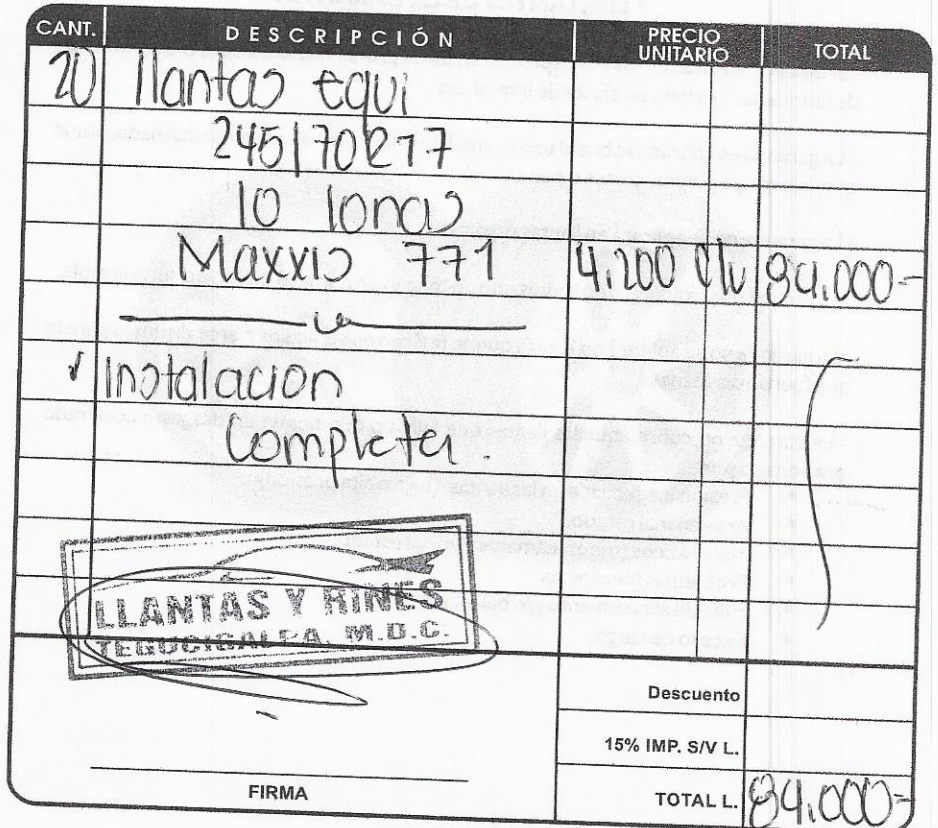 CANT. DESCRIPCIÓN PRECIO UNITARIO TOTAL
20 llantas equi
245/70R17
10 lonas
Maxxis 771 4,200 c/u 84,000=
✓ Instalacion
completa.
LLANTAS Y RINES
TEGUCIGALPA, M.D.C.
Descuento
15% IMP. S/V L.
FIRMA
TOTAL L. 84,000=